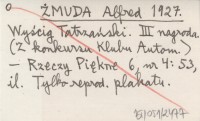 ŻMUDA Alfred 1927.
Wyścig Tatrzański. III nagroda
(z konkursu Klubu Autom.)
— Rzeczy Piękne 6, nr 4: 53,
il. Tylko reprod. plakatu.